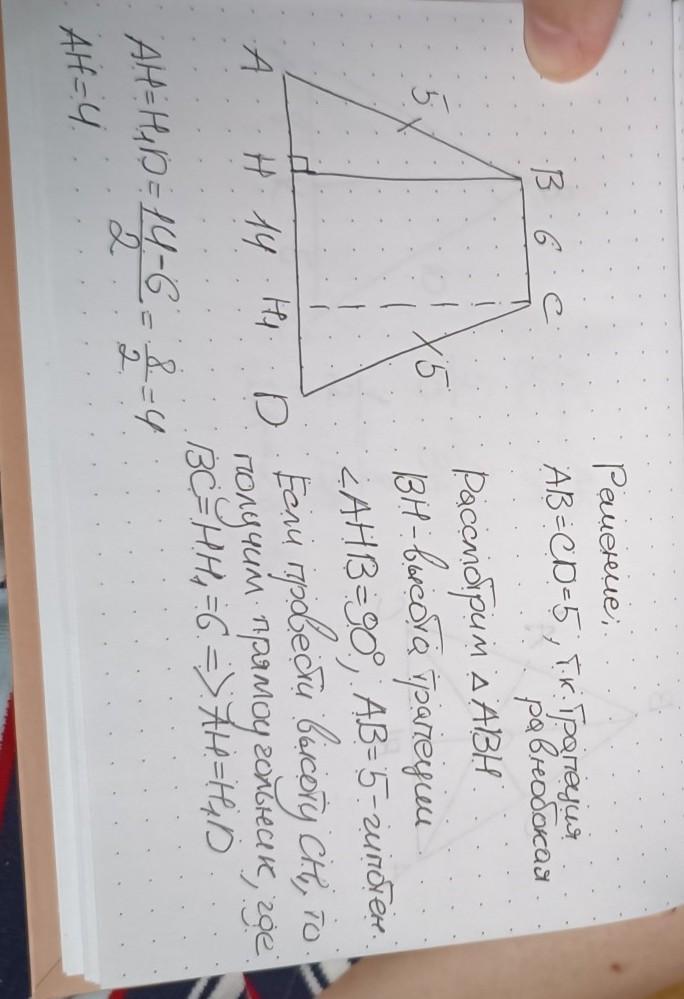 Решение:
AB=CD=5, т.к. трапеция
равнобокая
Рассмотрим △ABH
BH-высота трапеции
∠AHB=90°, AB=5-гипотен.
Если провести высоту CH₁, то
получим прямоугольник, где
BC=HH₁=6 => AH=H₁D
B 6 C
5
5
A H 14 H₁ D
AH=H₁D=14-6/2=8/2=4
AH=4